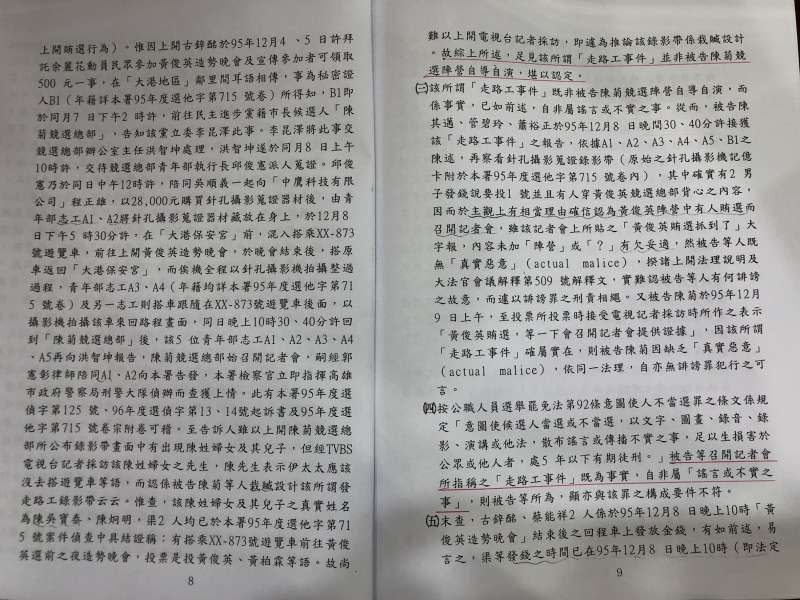 上開賄選行為)。惟因上開古鋅酩於95年12月4 、5 日許拜
託余麗花動員民眾參加黃俊英造勢晚會及宣傳參加者可領取
500 元一事,在「大港地區」鄰里間耳語相傳,事為秘密證
人B1(年籍詳本署95年度選他字第715 號卷)所得知,B1即
於同月7 日下午2 時許,前往民主進步黨籍市長候選人「陳
菊競選總部」,告知該黨立委李昆澤此事。李昆澤將此事交
競選總部辦公室主任洪智坤處理,洪智坤遂於同月8 日上午
10時許,交待競選總部青年部執行長邱俊憲派人蒐證。邱俊
憲乃於同日中午12時許,陪同吳順義一起向「中鷹科技有限
公司」程正雄,以28,000元購買針孔攝影蒐證器材後,由青
年部志工A1、A2將針孔攝影蒐證器材藏放在身上,於12月8
日下午5 時30分許,在「大港保安宮」前,混入搭乘XX-873
號遊覽車,前往上開黃俊英造勢晚會,於晚會結束後,搭原
車返回「大港保安宮」,而俟機全程以針孔攝影機拍攝整過
過程,青年部志工A3、A4(年籍均詳本署95年度選他字第71
5 號卷)及另一志工則搭車跟隨在XX-873號遊覽車後面,以
攝影機拍攝該車來回路程畫面,同日晚上10時30、40分許回
到「陳菊競選總部」後,該5 位青年部志工A1、A2、A3、A4
、A5再向洪智坤報告,陳菊競選總部始召開記者會,嗣經郭
憲彰律師陪同A1、A2向本署告發,本署檢察官立即指揮高雄
市政府警察局刑警大隊偵辦而查獲上情。此有本署95年度選
偵字第125 號、96年度選偵字第13、14號起訴書及95年度選
他字第715 號卷宗附卷可稽。至告訴人雖以上開陳菊競選總
部所公布錄影帶畫面中有出現陳姓婦女及其兒子,但經TVBS
電視台記者採訪該陳姓婦女之先生,陳先生表示伊太太應該
沒去搭遊覽車等語,而認係被告陳菊等人栽贓設計該所謂發
走路工錄影帶云云。惟查,該陳姓婦女及其兒子之真實姓名
為陳吳寶泰、陳炯明,梁2 人均已於本署95年度選他字第71
5 號案件偵查中具結證稱:有搭乘XX-873號遊覽車前往黃俊
英選前之夜造勢晚會,投票是投黃俊英、黃柏霖等語。故尚
8
難以上開電視台記者採訪,即遽為推論該錄影帶係栽贓設計
。故綜上所述,足見該所謂「走路工事件」並非被告陳菊競
選陣營自導自演,堪以認定。
㈢該所謂「走路工事件」既非被告陳菊競選陣營自導自演,而
係事實,已如前述,自非屬謠言或不實之事。從而,被告陳
其邁、管碧玲、蕭裕正於95年12月8 日晚間30、40分許接獲
該「走路工事件」之報告,依據A1、A2、A3、A4、A5、B1之
陳述,再察看針孔攝影蒐證錄影帶(原始之針孔攝影機記憶
卡附於本署95年度選他字第715 號卷內),其中確實有2 男
子發錢說要投1 號並且有人穿黃俊英競選總部背心之內容,
因而於主觀上有相當理由確信認為黃俊英陣營中有人賄選而
召開記者會,雖該記者會上所貼之「黃俊英賄選抓到了」大
字報,內容未加「陣營」或「?」有欠妥適,然被告等人既
無「真實惡意」(actual malice),揆諸上開法理說明及
大法官會議解釋第509 號解釋文,實難認被告等人有何誹謗
之故意,而遽以誹謗罪之刑責相繩。又被告陳菊於95年12月
9 日上午,至投票所投票時接受電視記者採訪時所作之表示
「黃俊英賄選,等一下會召開記者會提供證據」,因該所謂
「走路工事件」確屬實在,則被告陳菊因缺乏「真實惡意」
(actual malice),依同一法理,自亦無誹謗罪犯行之可
言。
㈣按公職人員選舉罷免法第92條意圖使人不當選罪之條文係規
定「意圖使候選人當選或不當選,以文字、圖畫、錄音、錄
影、演講或他法,散布謠言或傳播不實之事,足以生損害於
公眾或他人者,處5 年以下有期徒刑。」被告等召開記者會
所指稱之「走路工事件」既為事實,自非屬「謠言或不實之
事」,則被告等所為,顯亦與該罪之構成要件不符。
㈤末查,古鋅酩、蔡能祥2 人係於95年12月8 日晚上10時「黃
俊英造勢晚會」結束後之回程車上發放金錢,有如前述,易
言之,梁等發錢之時間已在95年12月8 日晚上10時(即法定
9